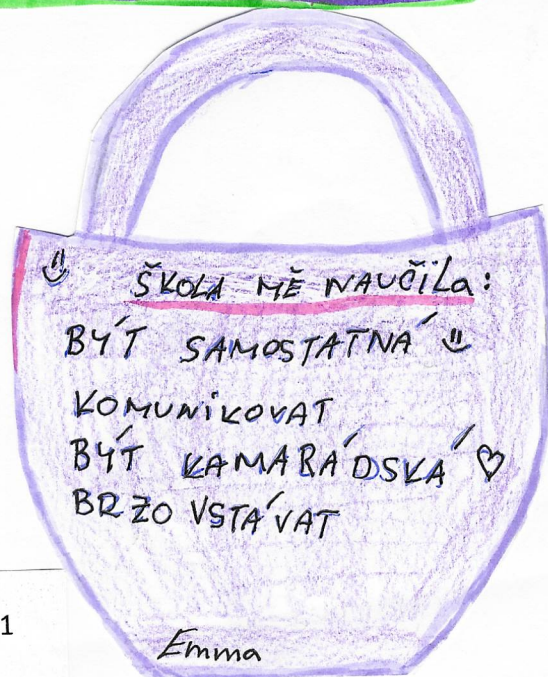 ŠKOLA MĚ NAUČILA:
BÝT SAMOSTATNÁ
KOMUNIKOVAT
BÝT KAMARÁDSKÁ ♡
BRZO VSTÁVAT
1
Emma